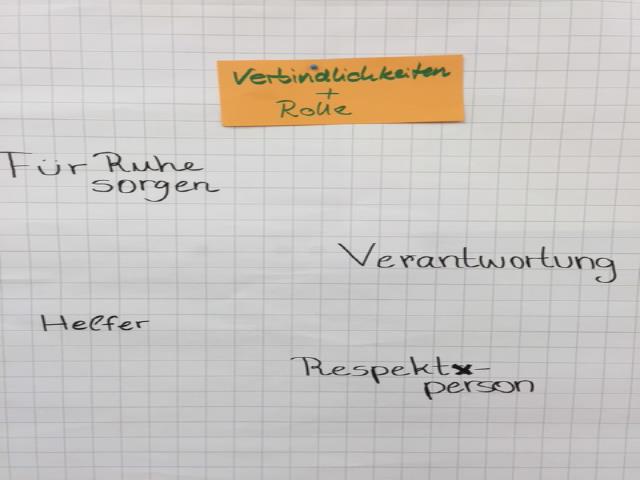 Verbindlichkeiten
+
Rolle
Für Ruhe
sorgen
Verantwortung
Helfer
Respekt-
person